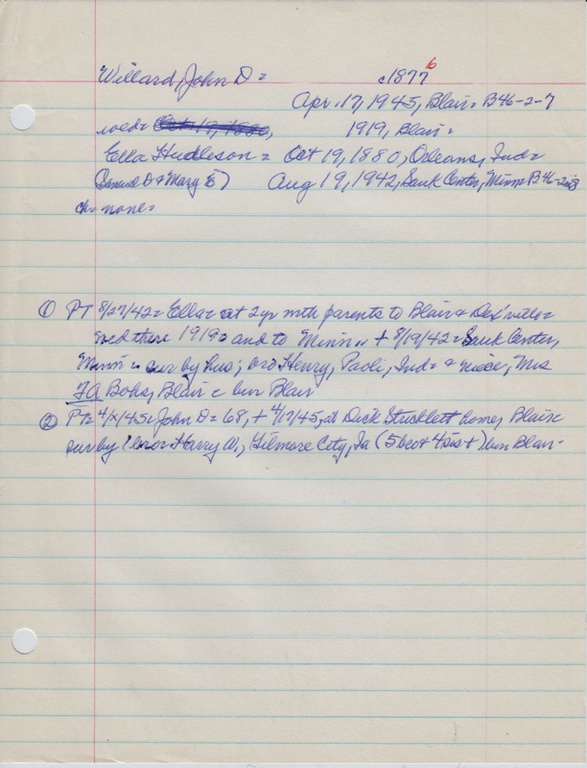 Willard, John D = c1877 6
Apr. 17, 1945, Blair = B46-2-7
wed = Oct 19, 1880, 1919, Blair =
Ella Hudleson = Oct 19, 1880, Orleans, Ind =
D & Mary E) Aug 19, 1942, Sauk Center, Minn = B46-2-8
ch = none =
① PT 8/27/42 = Ella = at 2yr with parents to Blair & Dex'ville =
wed there 1919 = and to Minn = + 8/19/42 = Sauk Center,
Minn = sur by hus; bro Henry, Paoli, Ind = & niece, Mrs
FA Bohs, Blair = bur Blair
② PT = John D = 68, + 4/17/45, at Dick Strcklett home, Blair =
sur by 1 bro = Harry W., Gilmore City, Ia (5 bro + 4 sis +) bur Blair -